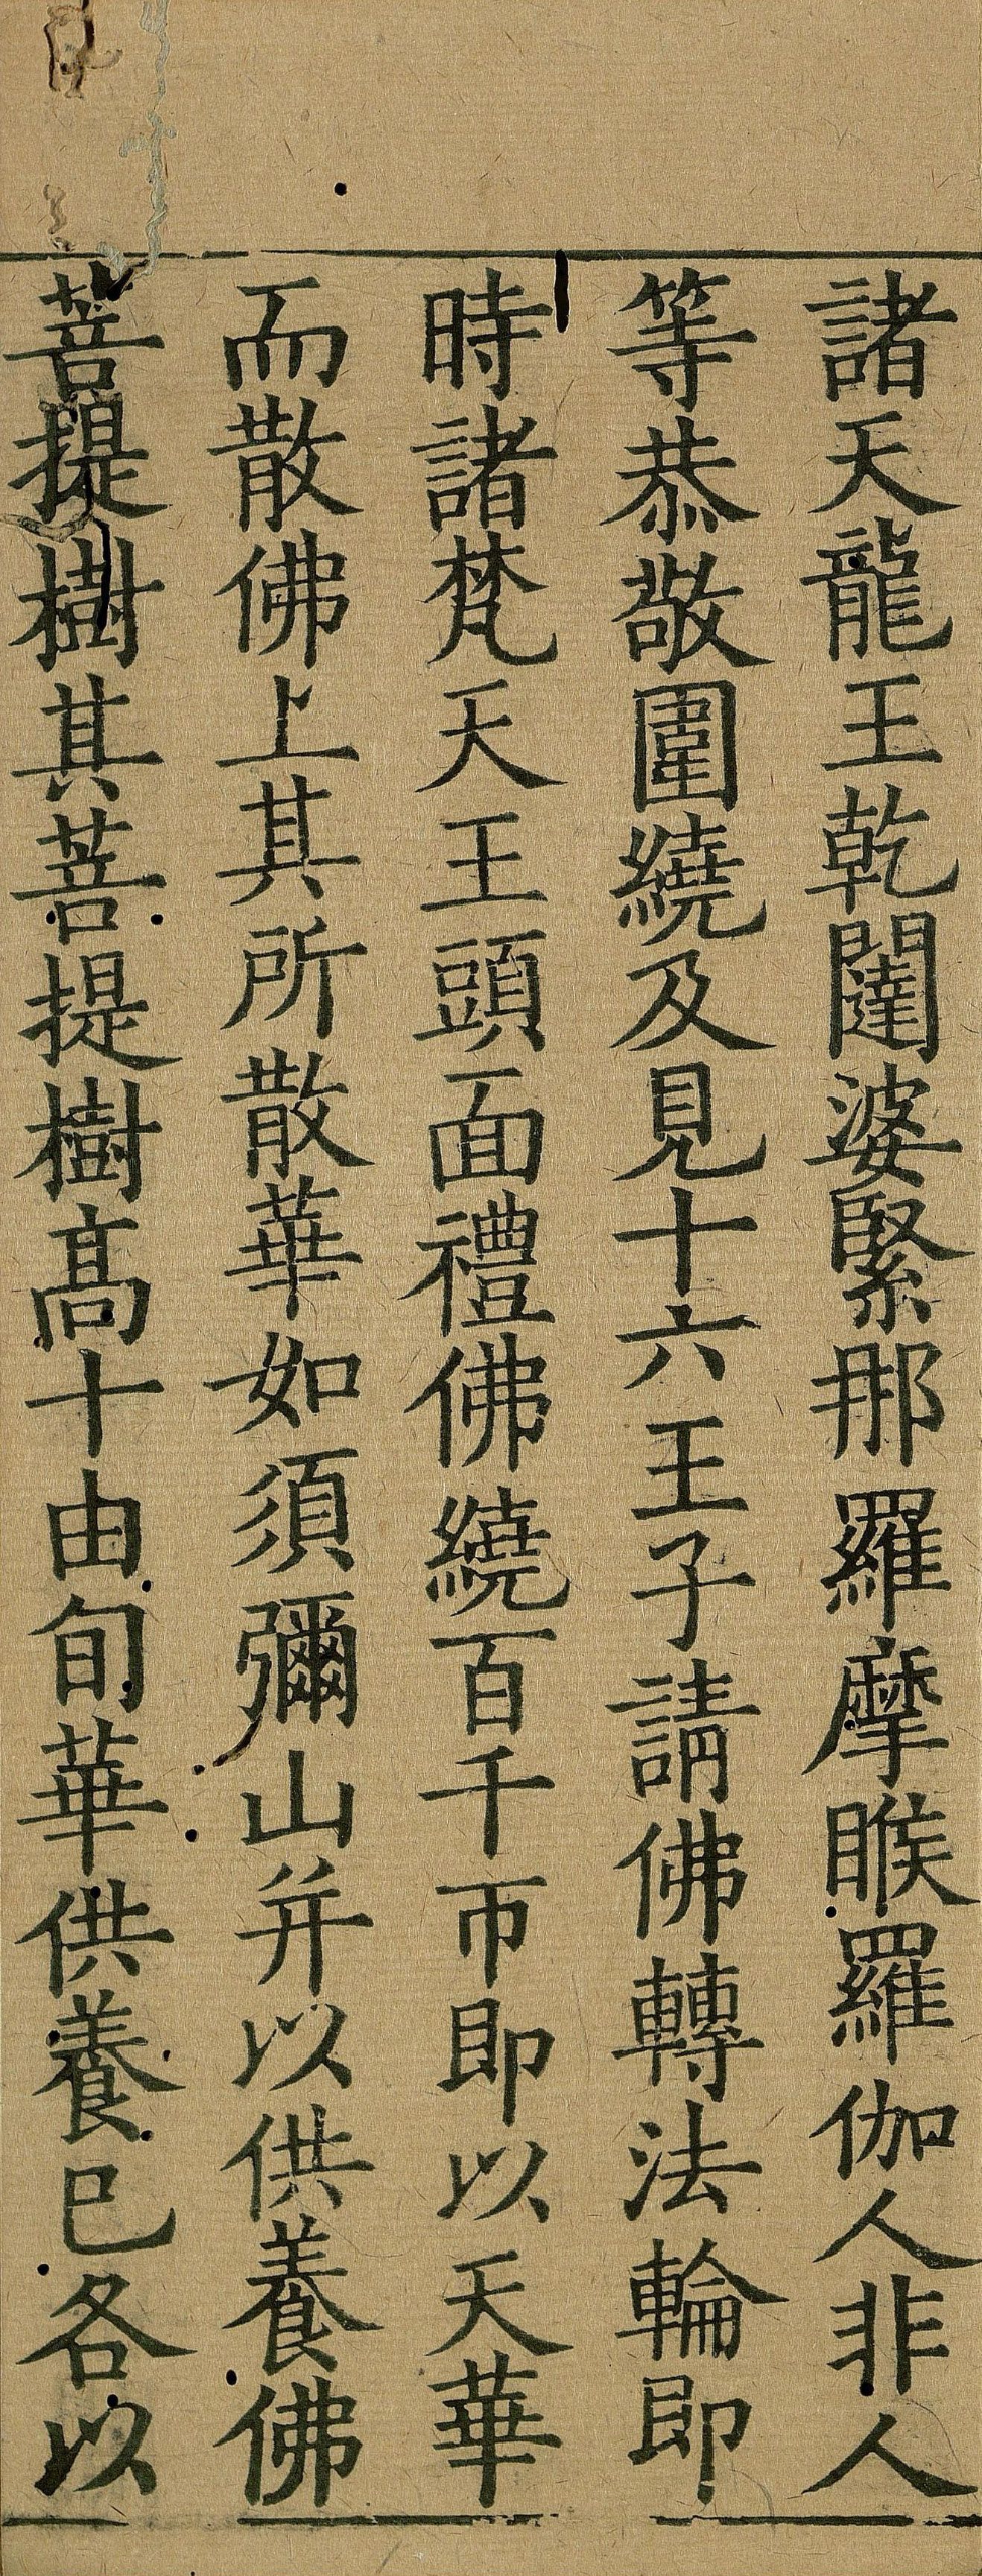 諸天龍王乾闥婆緊那羅摩睺羅伽人非人
等恭敬圍繞及見十六王子請佛轉法輪即
時諸梵天王頭面禮佛繞百千帀即以天華
而散佛上其所散華如須彌山并以供養佛
菩提樹其菩提樹高十由旬華供養已各以